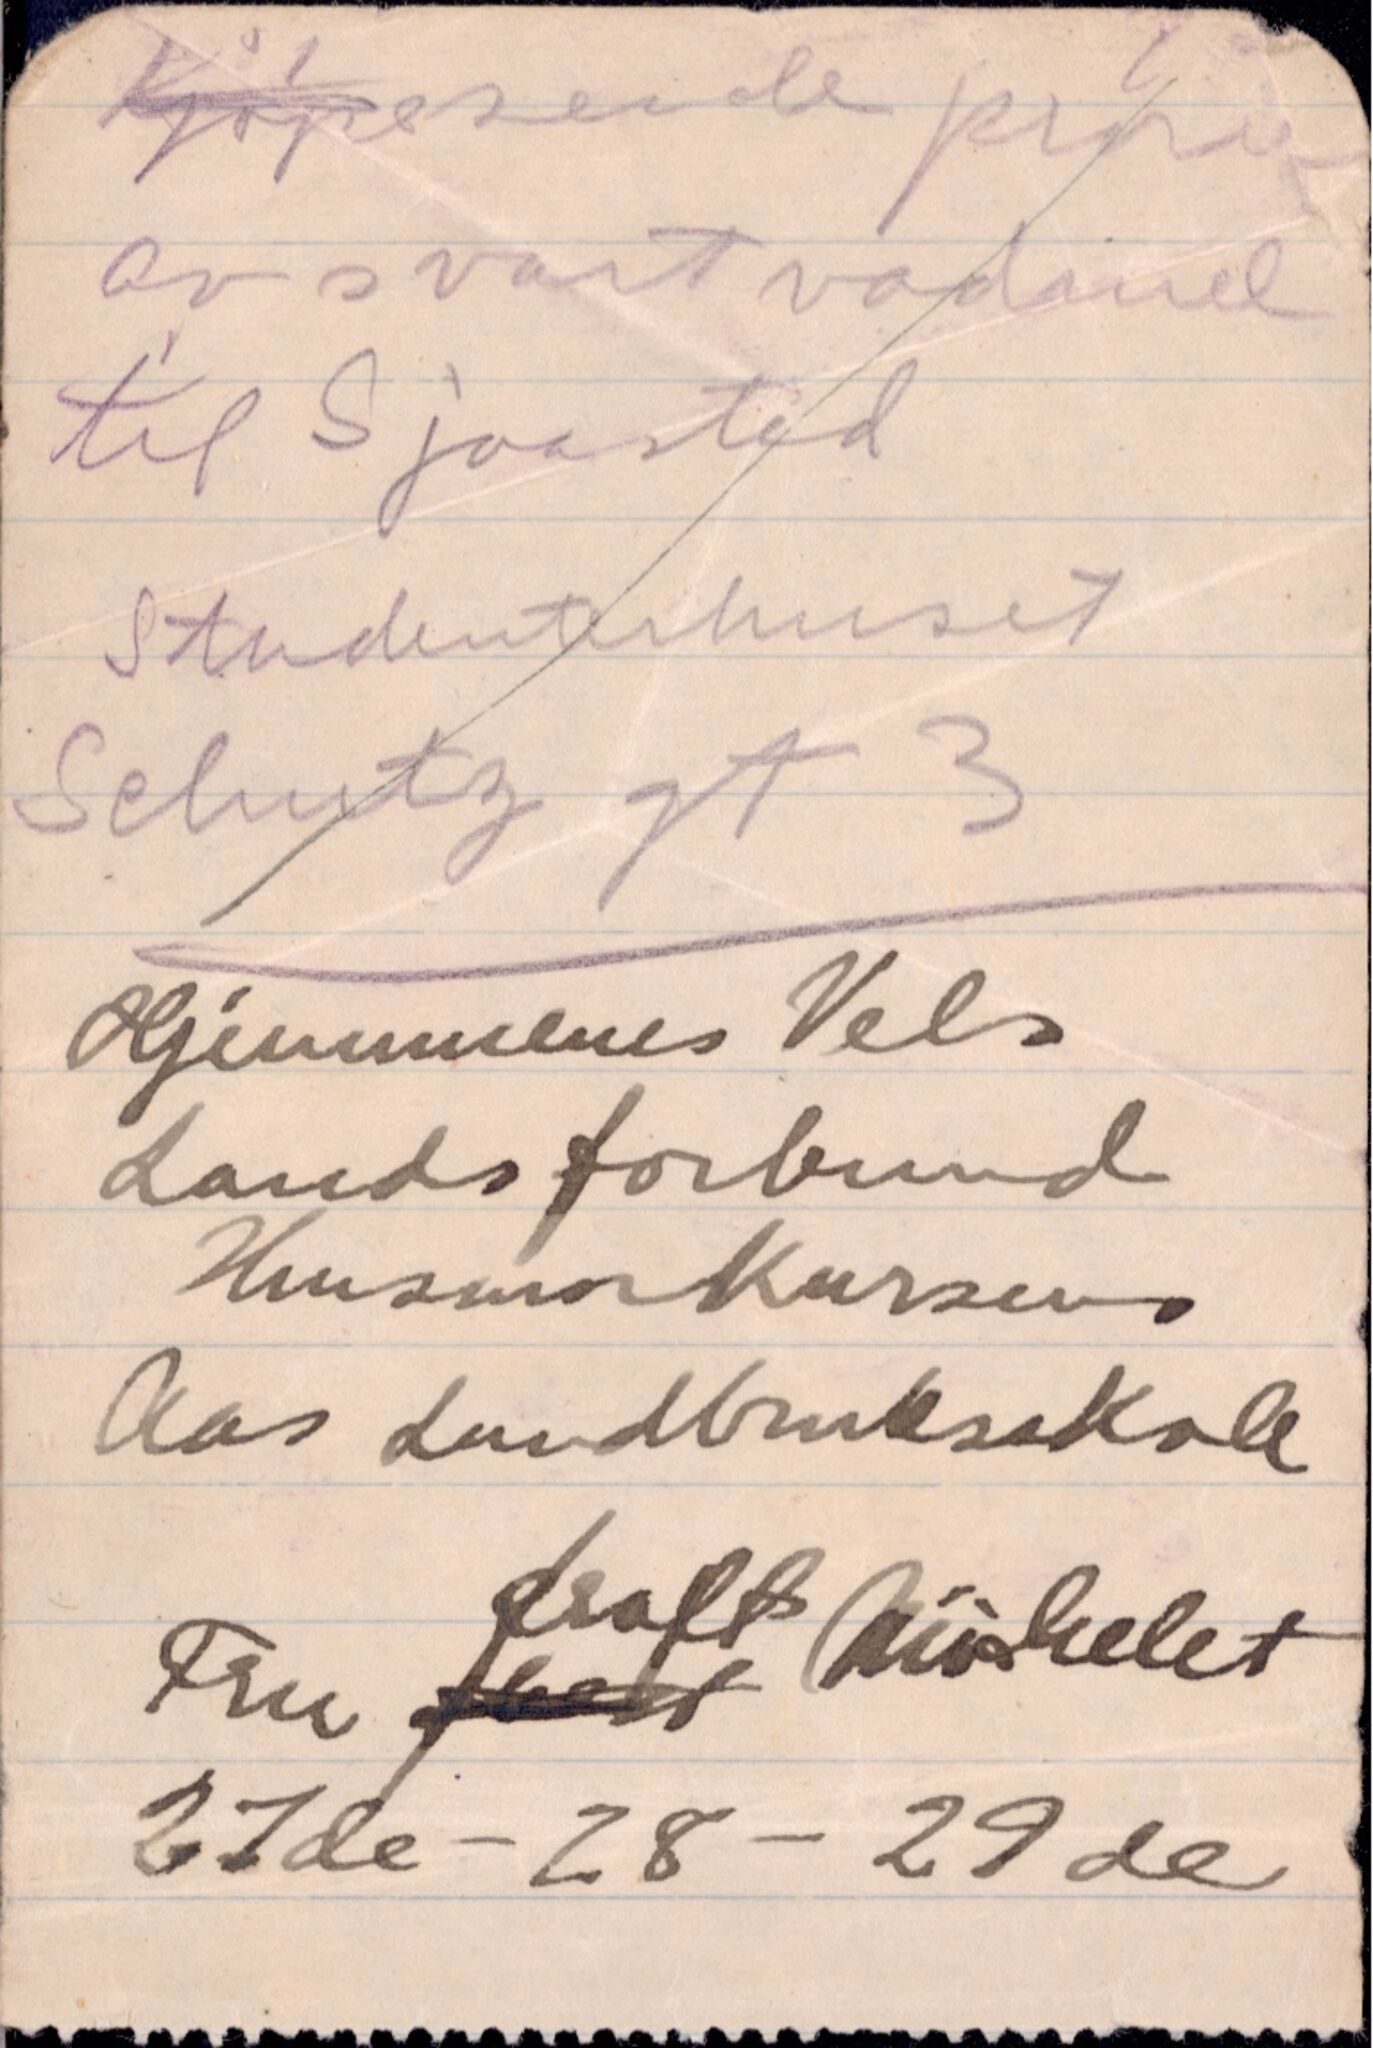 Kjøpe sende prøve
av svart vadmel
til Sjaastad
Studenterhuset
Schutz gt 3
Hjemmenes Vels
Landsforbund
Husmorkursus
Aas Landbruksskole
Fru Michelet
27de - 28 - 29 de